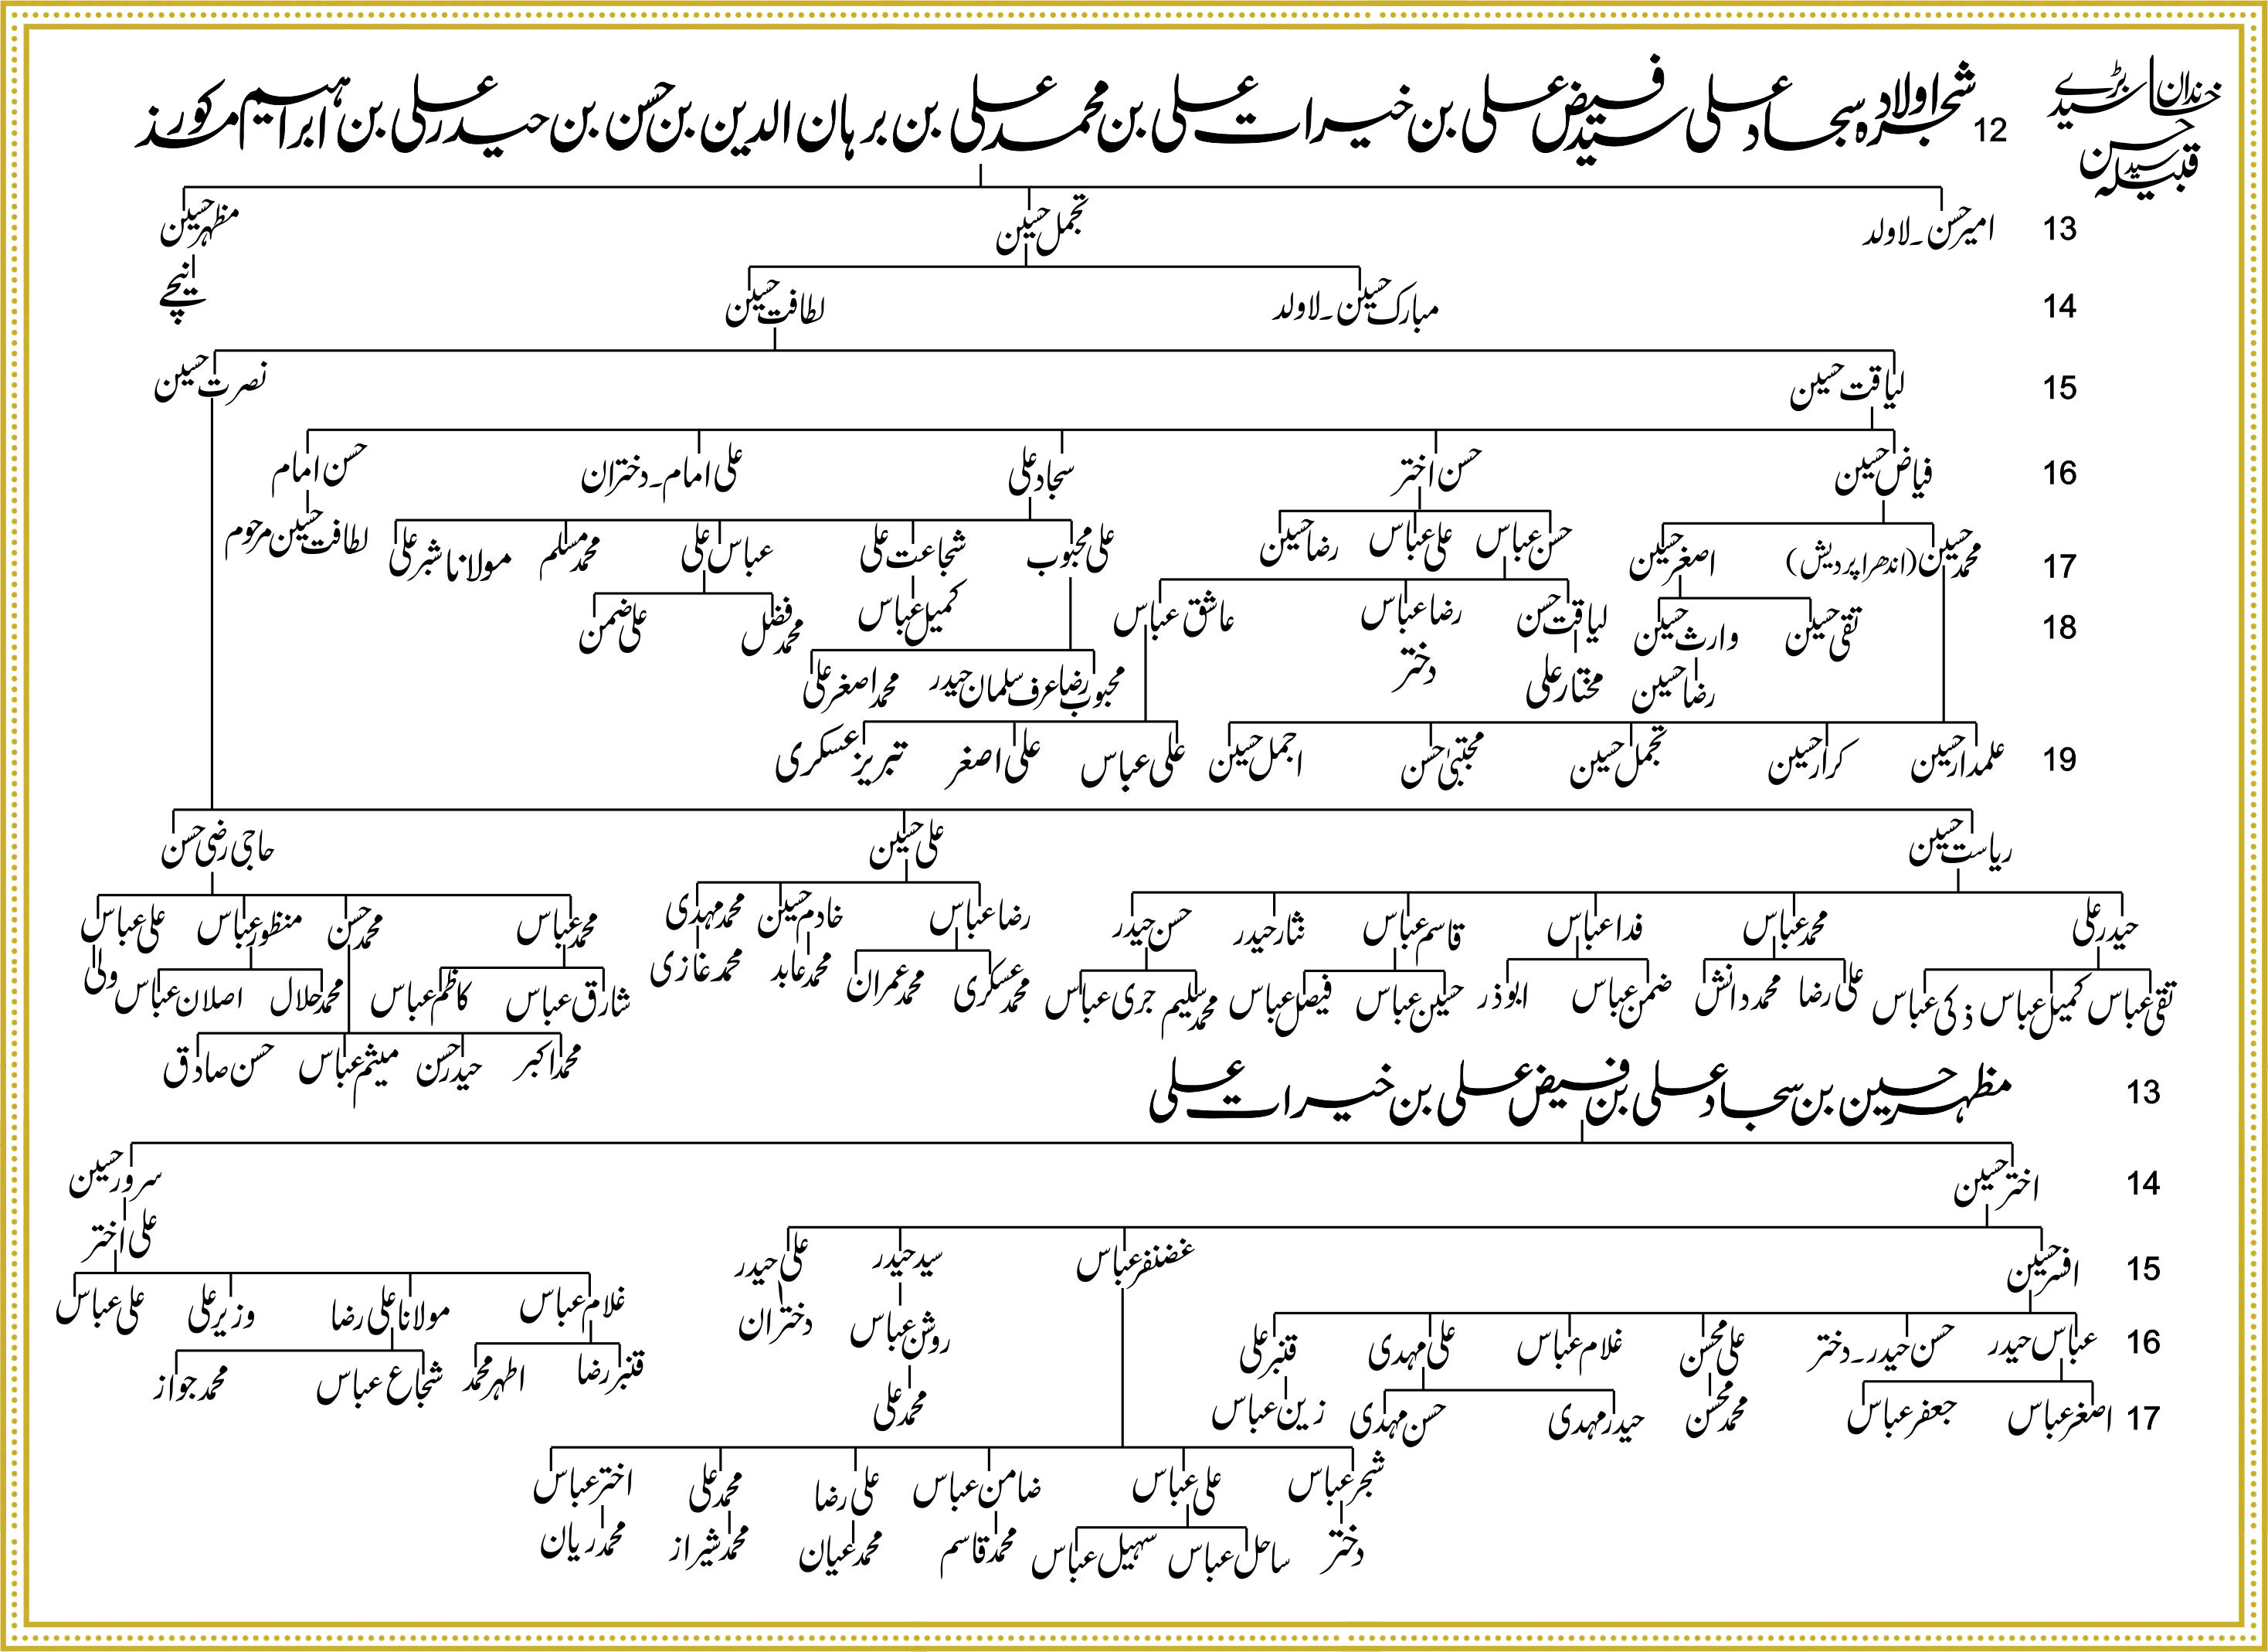 خاندان سید بڑے
حسن
قبیلہ سید
12 شجرہ اولاد سجاد علی سید فیض علی بن خیرات علی بن محمد علی بن برہان الدین بن حسن بن حیدر علی بن ابراہیم مذکور
13 امیر حسن۔لاولد تجمل حسین مظہر حسین
14 مبارک حسین۔لاولد لطافت حسین نیچے
15 لیاقت حسین نصرت حسین
16 فیاض حسین حسن اختر سجاد علی علی امام۔دختران حسن امام
17 محمد حسین (اندھرا پردیش) اصغر حسین حسن عباس علی عباس رضا حسین علی محبوب شجاعت علی عباس علی محمد مسلم مولانا شبر علی لطافت حسین مرحوم
18 تقی حسین وارث حسین لیاقت حسن رضا عباس عاشق عباس کمیل عباس محمد فضل علی ضمن
رضا حسین مختار علی دختر محبوب رضا عرف سلمان حیدر محمد اصغر علی
19 علمدار حسین کرار حسین تجمل حسین مجتبیٰ حسن اجمل حسین علی عباس علی اصغر تبریز عسکری
ریاست حسین علی حسین حاجی رضی حسن
حیدر علی محمد عباس فدا عباس قاسم عباس نثار حیدر حسن حیدر رضا عباس خادم حسین محمد مہدی محمد عباس محمد حسن منظور عباس علی عباس
تقی عباس کمیل عباس ذکی عباس علی رضا محمد دانش ضمن عباس ابوذر حسین عباس فیصل عباس محمد سلیم جری عباس محمد عسکری محمد عمران محمد عابد محمد غازی شارق عباس کاظم عباس محمد حلال اصلان عباس ولی
محمد اکبر حیدر حسن میثم عباس حسن صادق
13 مظہر حسین بن سجاد علی بن فیض علی بن خیرات علی
14 اختر حسین سرور حسین
علی اختر
15 افسر حسین غضنفر عباس سید حیدر علی حیدر
غلام عباس مولانا علی رضا وزیر علی علی عباس
16 عباس حیدر حسن حیدر۔دختر علی محسن غلام عباس علی مہدی قنبر علی روشن عباس دختران
قنبر رضا اطہر محمد شجاع عباس محمد جواز
17 اصغر عباس جعفر عباس محمد محسن حیدر مہدی حسن مہدی زین عباس محمد علی
شجر عباس علی عباس ضامن عباس علی رضا محمد علی اختر عباس
دختر ساحل عباس سہیل عباس محمد قاسم محمد عیان محمد شیراز محمد ریان